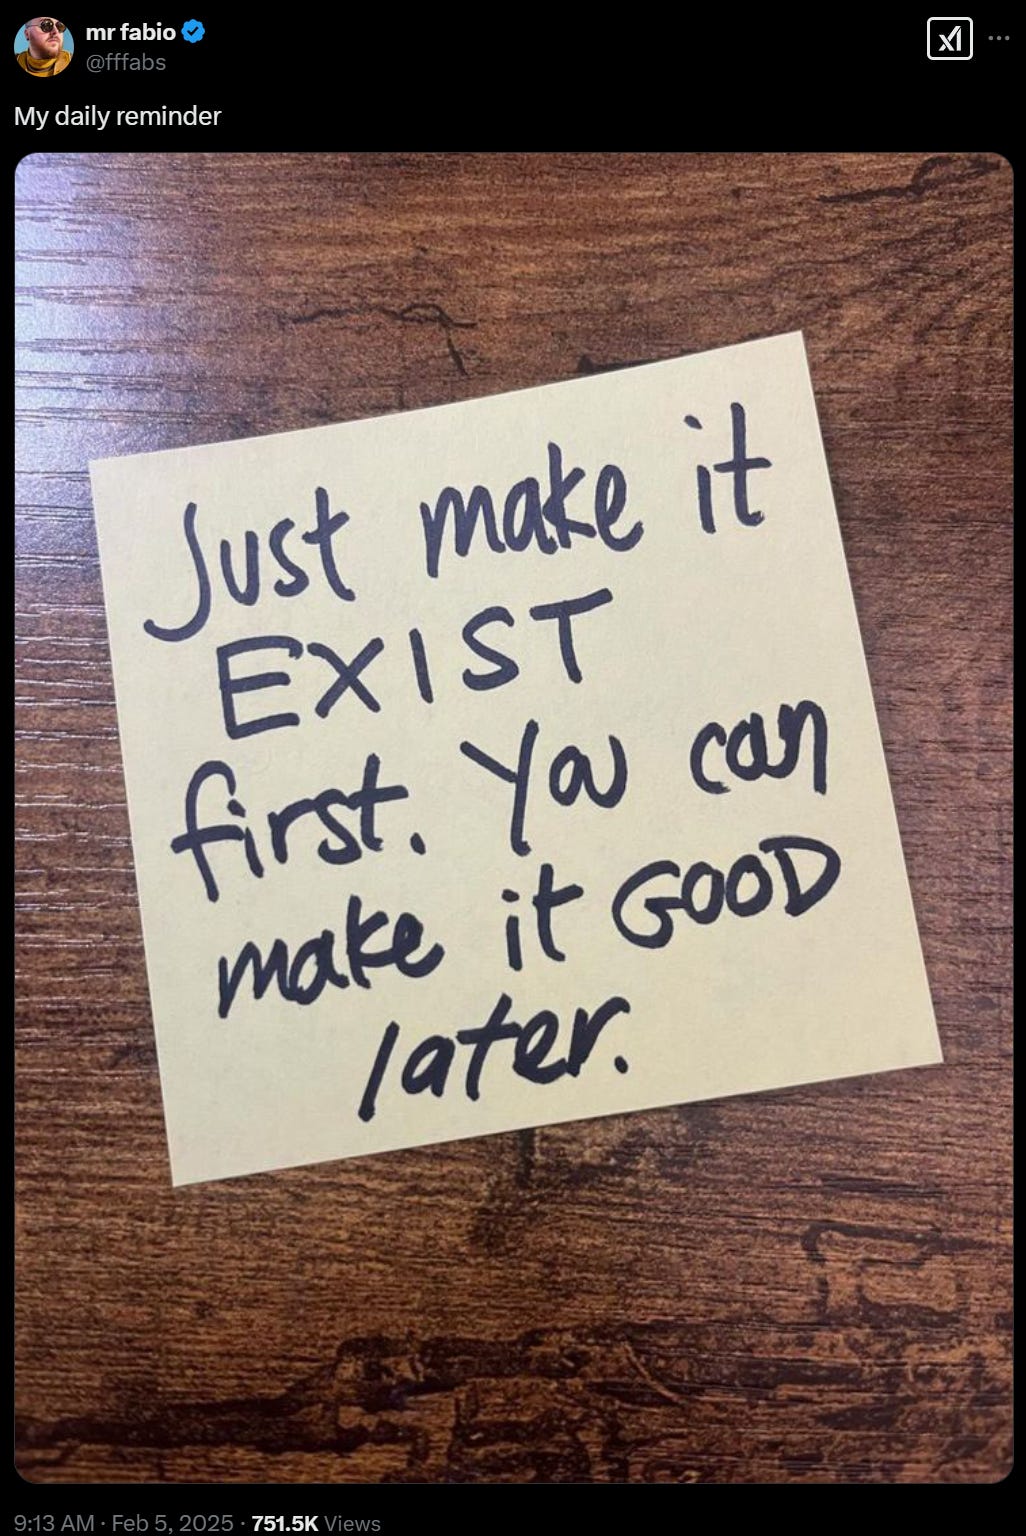 mr fabio
@fffabs
My daily reminder
Just make it
EXIST
first. You can
make it GOOD
later.
9:13 AM · Feb 5, 2025 · 751.5K Views